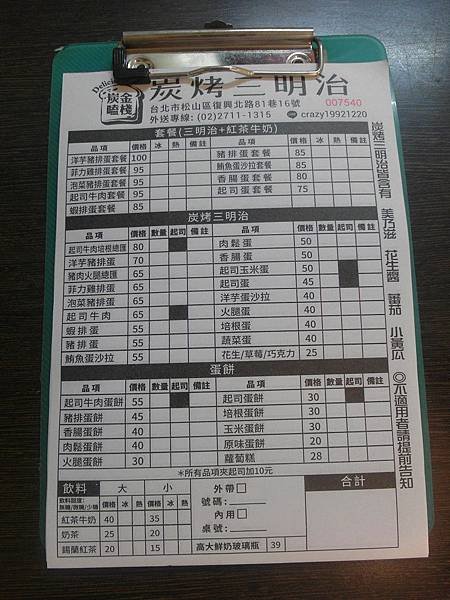 Delicious
炭金
嗑棧
炭烤三明治
台北市松山區復興北路81巷16號
007540
外送專線: (02)2711-1315
crazy19921220
套餐(三明治+紅茶牛奶)
品項 價格 冰 熱 備註 品項 價格 冰 熱 備註
洋芋豬排蛋套餐 100 豬排蛋套餐 85
菲力雞排蛋套餐 95 鮪魚蛋沙拉套餐 85
泡菜豬排蛋套餐 95 香腸蛋套餐 80
起司牛肉套餐 95 起司蛋套餐 75
蝦排蛋套餐 85
炭烤三明治
品項 價格 數量 起司 備註 品項 價格 數量 起司 備註
起司牛肉培根總匯 80 肉鬆蛋 50
洋芋豬排蛋 70 香腸蛋 50
豬肉火腿總匯 65 起司玉米蛋 50
菲力雞排蛋 65 起司蛋 45
泡菜豬排蛋 65 洋芋蛋沙拉 40
起司牛肉 65 火腿蛋 40
蝦排蛋 55 培根蛋 40
豬排蛋 55 蔬菜蛋 40
鮪魚蛋沙拉 55 花生/草莓/巧克力 25
蛋餅
品項 價格 數量 起司 備註 品項 價格 數量 起司 備註
起司牛肉蛋餅 55 起司蛋餅 30
豬排蛋餅 45 培根蛋餅 30
香腸蛋餅 40 玉米蛋餅 30
肉鬆蛋餅 40 原味蛋餅 20
火腿蛋餅 30 蘿蔔糕 28
*所有品項夾起司加10元
飲料 大 小 外帶 合計
飲料甜度:
無糖/微糖/少糖 價格 冰 熱 價格 冰 熱 號碼:
紅茶牛奶 40 35 內用
奶茶 25 20 桌號:
錫蘭紅茶 20 15 高大鮮奶玻璃瓶 39
炭烤三明治皆含有 美乃滋 花生醬 番茄 小黃瓜 ◎不適用者請提前告知